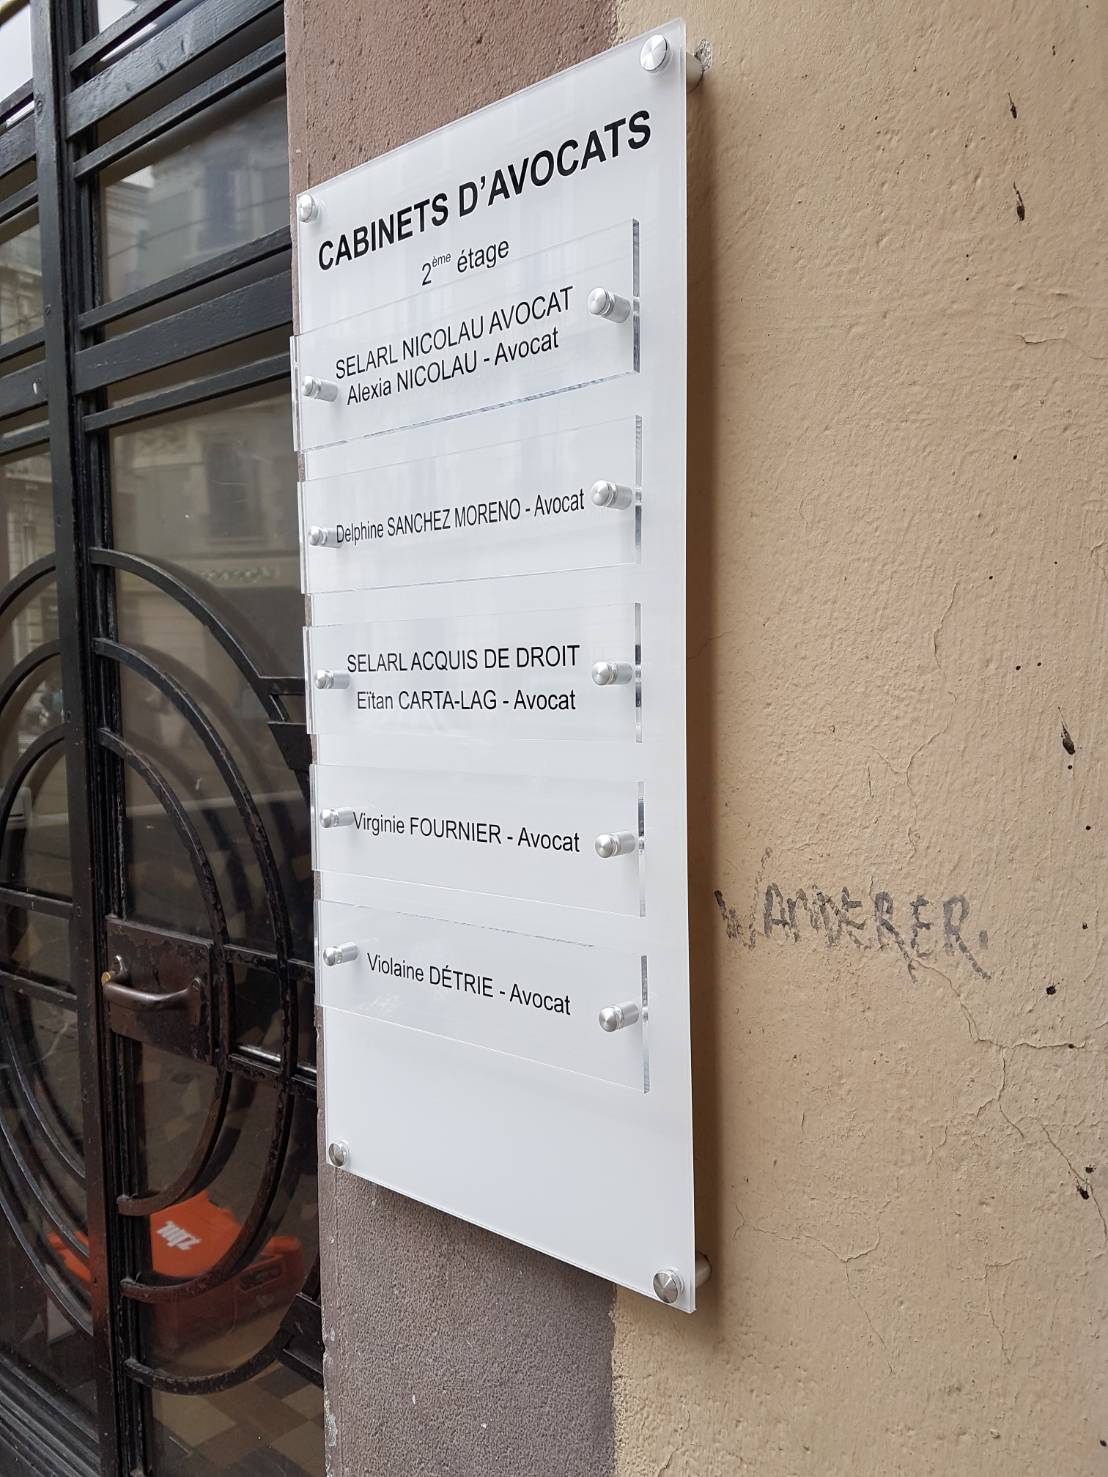 CABINETS D'AVOCATS
2ème étage
SELARL NICOLAU AVOCAT
Alexia NICOLAU - Avocat
Delphine SANCHEZ MORENO - Avocat
SELARL ACQUIS DE DROIT
Eïtan CARTA-LAG - Avocat
Virginie FOURNIER - Avocat
Violaine DÉTRIE - Avocat
WANDERER.